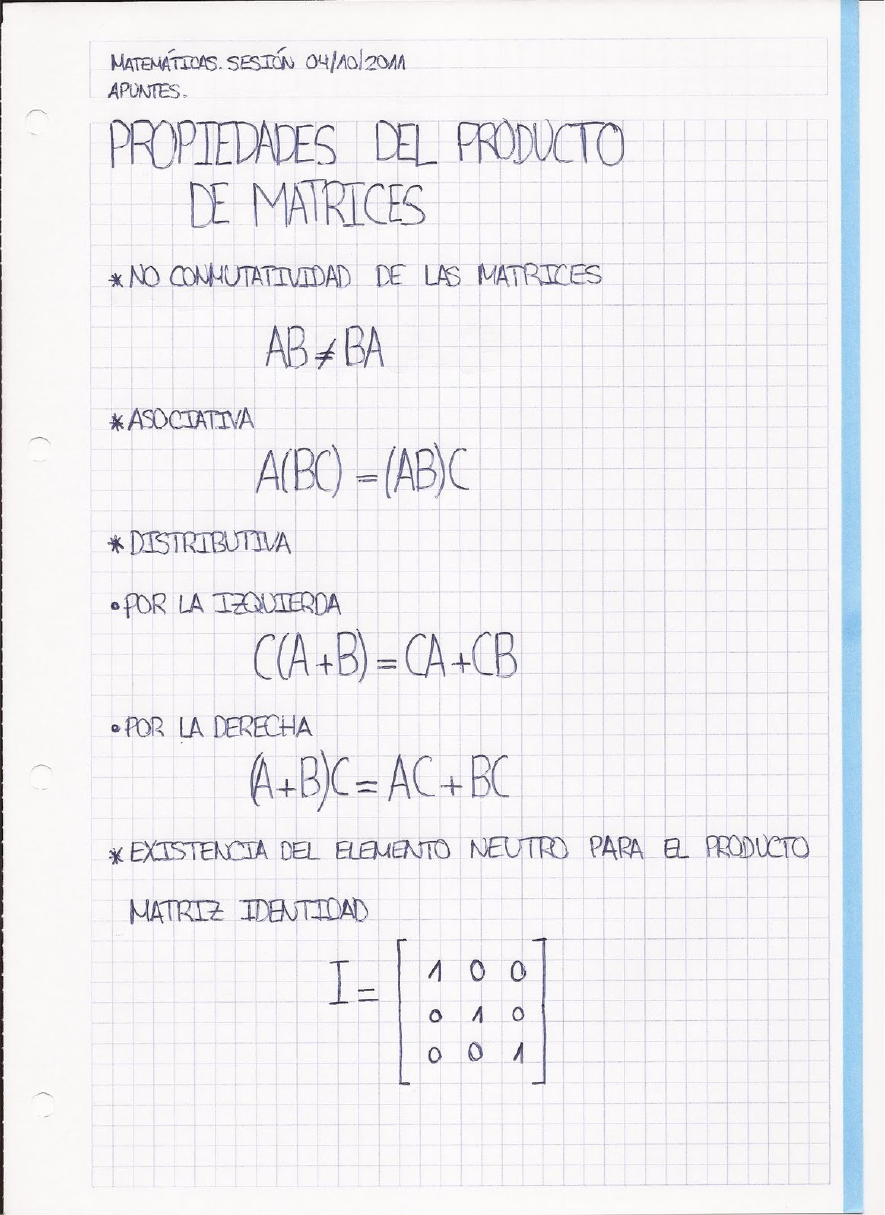 MATEMÁTICAS. SESIÓN 04/10/2011
APUNTES.
PROPIEDADES DEL PRODUCTO
DE MATRICES
* NO CONMUTATIVIDAD DE LAS MATRICES
AB ≠ BA
* ASOCIATIVA
A(BC) = (AB)C
* DISTRIBUTIVA
• POR LA IZQUIERDA
C(A+B) = CA+CB
• POR LA DERECHA
(A+B)C = AC + BC
* EXISTENCIA DEL ELEMENTO NEUTRO PARA EL PRODUCTO
MATRIZ IDENTIDAD
I = [1 0 0
0 1 0
0 0 1]